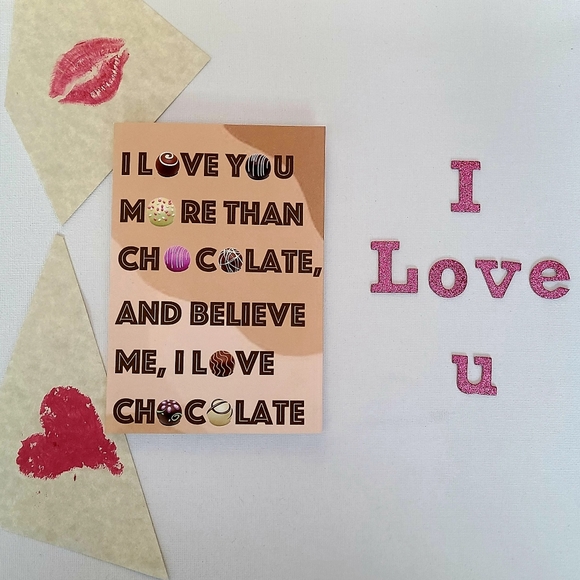 I LOVE YOU
MORE THAN
CHOCOLATE,
AND BELIEVE
ME, I LOVE
CHOCOLATE
I
Love
u